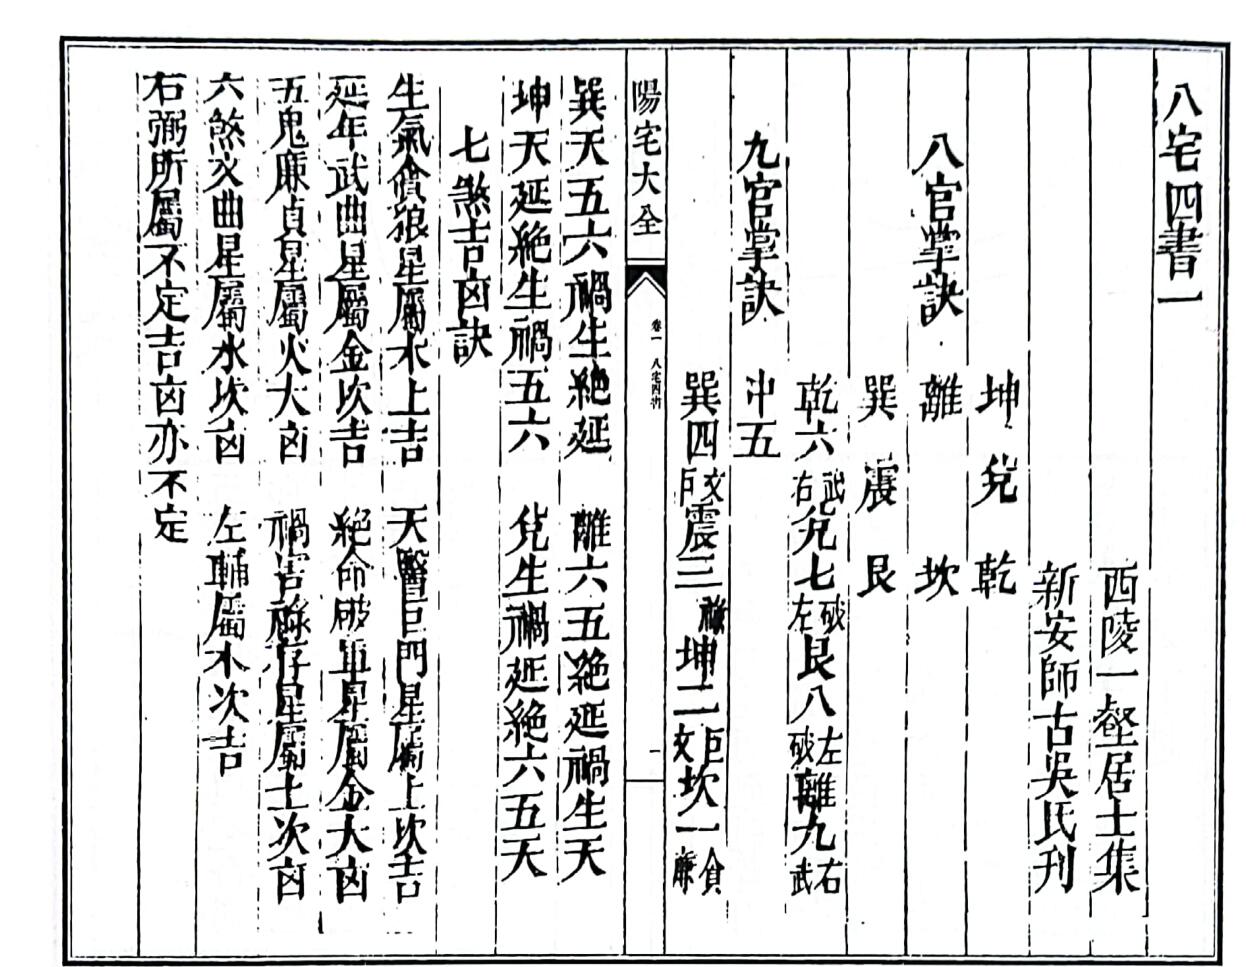 八宅四書一
西陵一壑居士集
新安師古吳氏刊
坤 兌 乾
八官掌訣 離 坎
巽 震 艮
乾六武右兌七破左艮八左破離九右武
九官掌訣 中五
巽四文巨震三祿坤二巨文坎一貪廉
陽宅大全 卷一 八宅四書 一
巽天五六禍生絶延 離六五絶延禍生天
坤天延絶生禍五六 兌生禍延絶六五天
七煞吉凶訣
生氣貪狼星屬木上吉 天醫巨門星屬土次吉
延年武曲星屬金次吉 絶命破軍星屬金大凶
五鬼廉貞星屬火大凶 禍害祿存星屬土次凶
六煞文曲星屬水次凶 左輔屬木次吉
右弼所屬不定吉凶亦不定